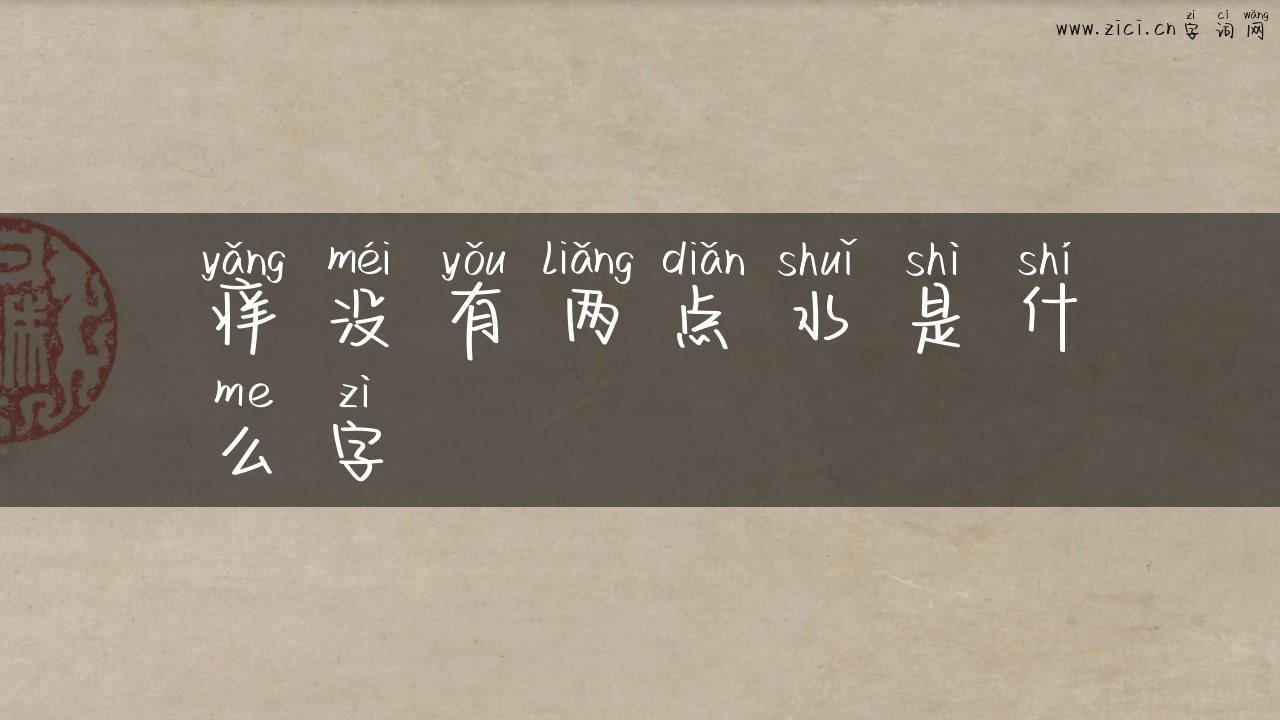 zì cí wǎng
www.zici.cn 字 词 网
yǎng méi yǒu liǎng diǎn shuǐ shì shí
痒 没 有 两 点 水 是 什
me zì
么 字